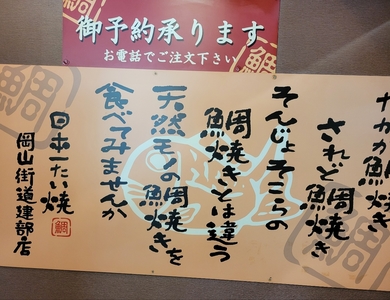 御予約承ります
お電話でご注文下さい
鯛
鯛
たかが鯛焼き
されど鯛焼き
そんじょそこらの
鯛焼きとは違う
天然モノの鯛焼きを
食べてみませんか
日本一たい焼
鯛
岡山街道建部店
鯛
鯛